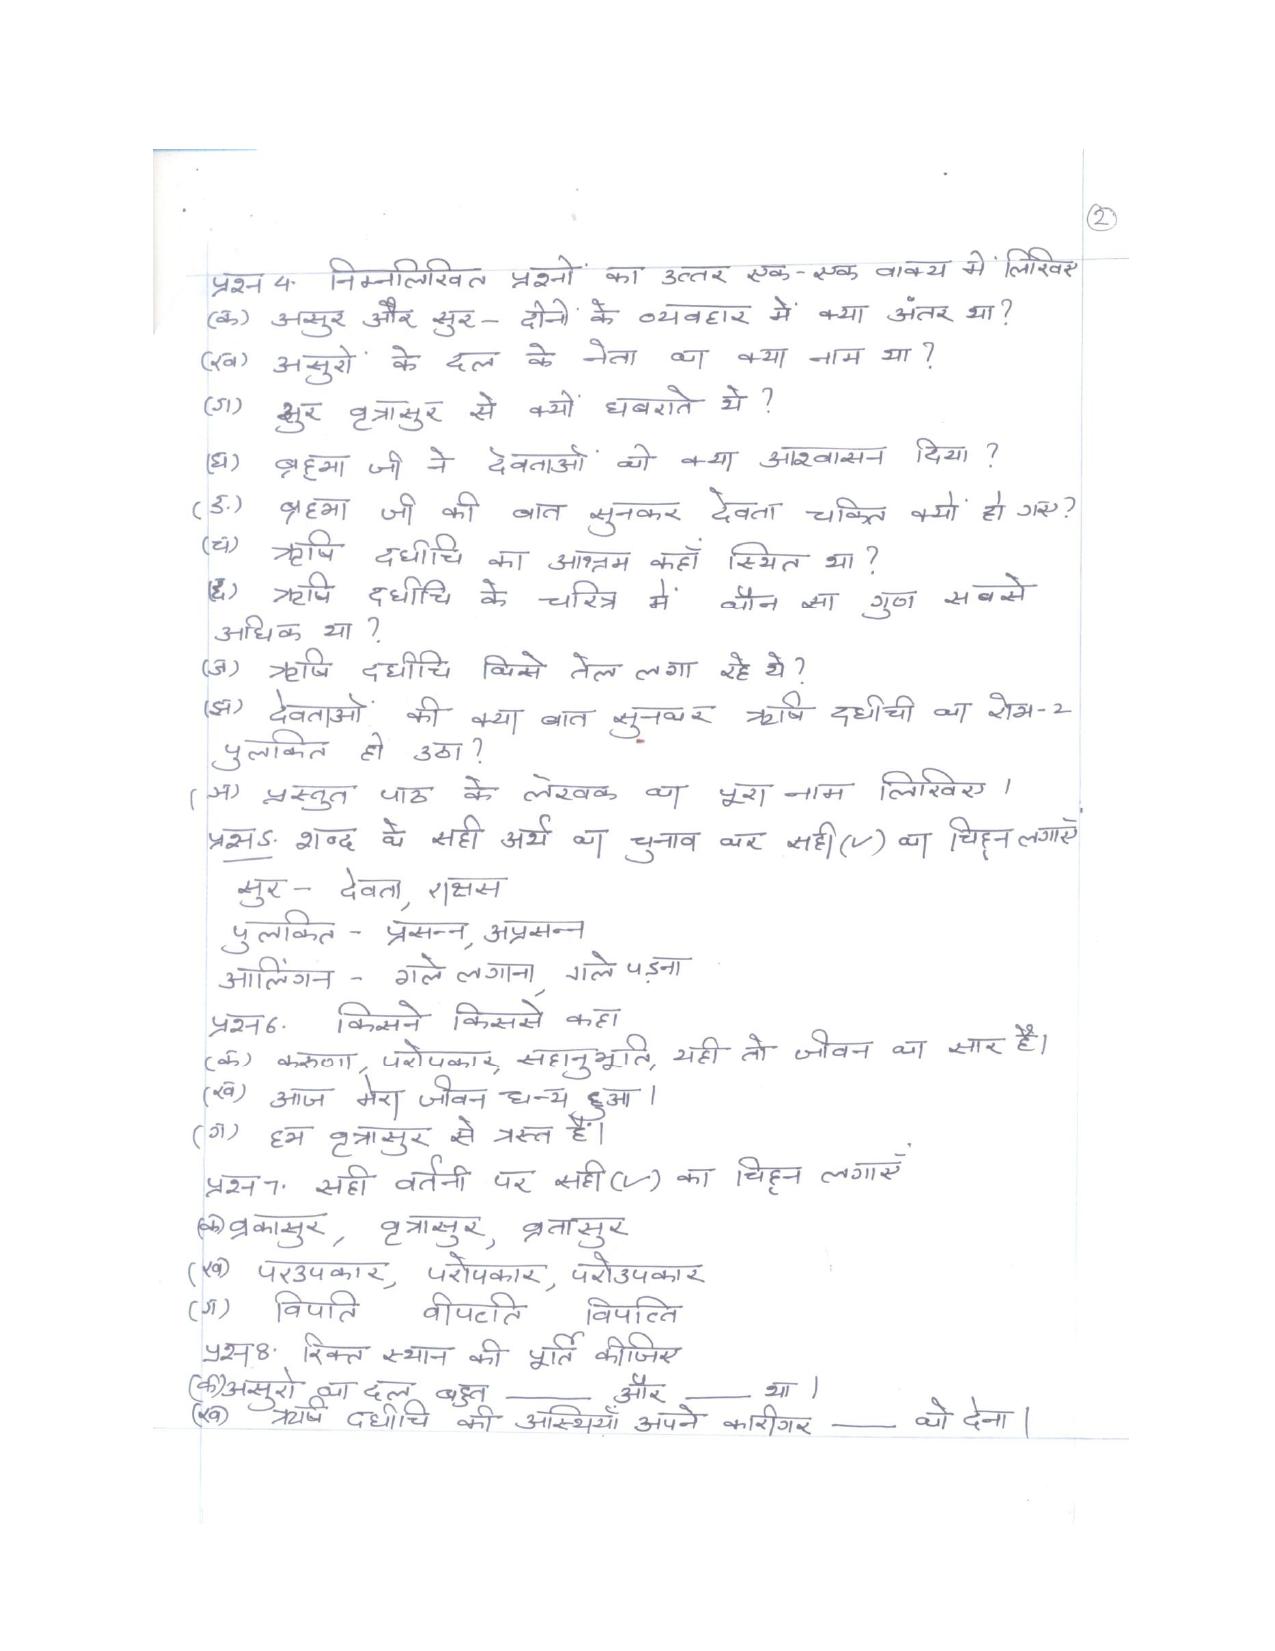 2
प्रश्न 4. निम्नलिखित प्रश्नों का उत्तर एक-एक वाक्य में लिखिए
(क) असुर और सुर – दोनों के व्यवहार में क्या अंतर था?
(ख) असुरों के दल के नेता का क्या नाम था?
(ग) सुर वृत्रासुर से क्यों घबराते थे?
(घ) ब्रह्मा जी ने देवताओं को क्या आश्वासन दिया?
(ङ) ब्रह्मा जी की बात सुनकर देवता चकित क्यों हो गए?
(च) ऋषि दधीचि का आश्रम कहाँ स्थित था?
(छ) ऋषि दधीचि के चरित्र में कौन सा गुण सबसे
अधिक था?
(ज) ऋषि दधीचि किसे तेल लगा रहे थे?
(झ) देवताओं की क्या बात सुनकर ऋषि दधीची का रोम-२
पुलकित हो उठा?
(ञ) प्रस्तुत पाठ के लेखक का पूरा नाम लिखिए।
प्रश्न5. शब्द के सही अर्थ का चुनाव कर सही(✓) का चिह्न लगाएँ
सुर – देवता, राक्षस
पुलकित – प्रसन्न, अप्रसन्न
आलिंगन – गले लगाना, गले पड़ना
प्रश्न6. किसने किससे कहा
(क) करुणा, परोपकार, सहानुभूति, यही तो जीवन का सार है।
(ख) आज मेरा जीवन धन्य हुआ।
(ग) हम वृत्रासुर से त्रस्त हैं।
प्रश्न7. सही वर्तनी पर सही(✓) का चिह्न लगाएँ
(क) व्रकासुर, वृत्रासुर, व्रतासुर
(ख) परउपकार, परोपकार, परोउपकार
(ग) विपति वीपत्ति विपत्ति
प्रश्न8. रिक्त स्थान की पूर्ति कीजिए
(क) असुरों का दल बहुत ——— और ——— था।
(ख) ऋषि दधीचि की अस्थियाँ अपने कारीगर ——— को देना।